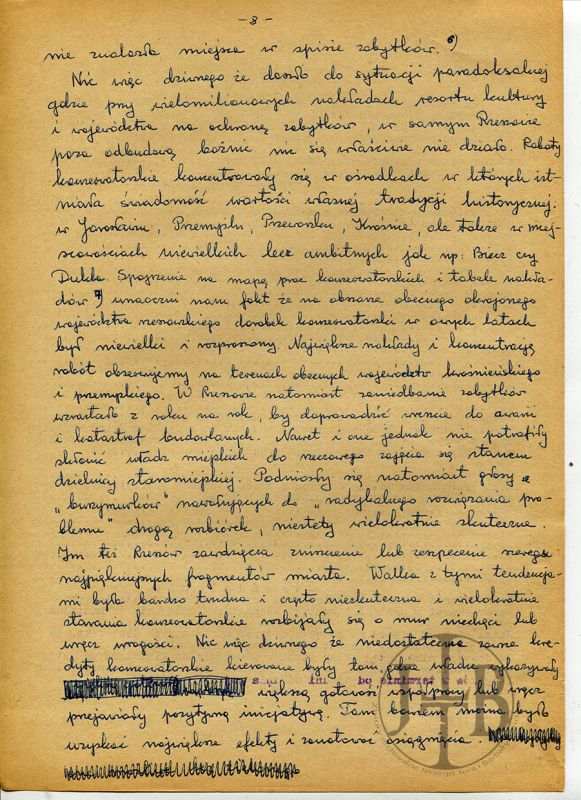 - 3 -
nie znalazła miejsca w spisie zabytków. 6)
Nic więc dziwnego że doszło do sytuacji paradoksalnej
gdzie przy wielomilionowych nakładach resortu kultury
i województwa na ochronę zabytków, w samym Rzeszowie
poza odbudową bożnic nic się właściwie nie działo. Roboty
konserwatorskie koncentrowały się w ośrodkach w których ist-
niała świadomość wartości własnej tradycji historycznej:
w Jarosławiu, Przemyślu, Przeworsku, Krośnie, ale także w miej-
scowościach niewielkich lecz ambitnych jak np: Biecz czy
Dukla. Spojrzenie na mapę prac konserwatorskich i tabele nakła-
dów 7) unaoczni nam fakt że na obszarze obecnego okrojonego
województwa rzeszowskiego dorobek konserwatorski w owych latach
był niewielki i rozproszony. Największe nakłady i koncentrację
robót obserwujemy na terenach obecnych województw krośnieńskiego
i przemyskiego. W Rzeszowie natomiast zaniedbanie zabytków
wzrastało z roku na rok, by doprowadzić wreszcie do awarii
i katastrof budowlanych. Nawet i one jednak nie potrafiły
skłonić władz miejskich do rzeczowego zajęcia się stanem
dzielnicy staromiejskiej. Podniosły się natomiast głosy
"burzymurków" nawołujących do "radykalnego rozwiązania pro-
blemu" drogą rozbiórek, niestety wielokrotnie skuteczne.
Im też Rzeszów zawdzięcza zniszczenie lub zeszpecenie szeregu
najpiękniejszych fragmentów miasta. Walka z tymi tendencja-
mi była bardzo trudna i często nieskuteczna i wielokrotnie
starania konserwatorskie rozbijały się o mur niechęci lub
wręcz wrogości. Nic więc dziwnego że niedostateczne zawsze kre-
dyty konserwatorskie kierowane były tam, gdzie władze wykazywały
większą gotowość współpracy lub wręcz
przejawiały pozytywną inicjatywę. Tam bowiem można było
uzyskać największe efekty i zanotować osiągnięcia.